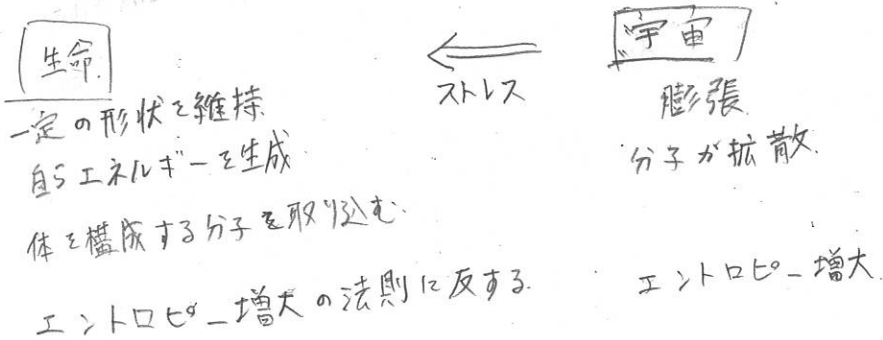 生命
一定の形状を維持
自らエネルギーを生成
体を構成する分子を取り込む
エントロピー増大の法則に反する
ストレス
宇宙
膨張
分子が拡散
エントロピー増大